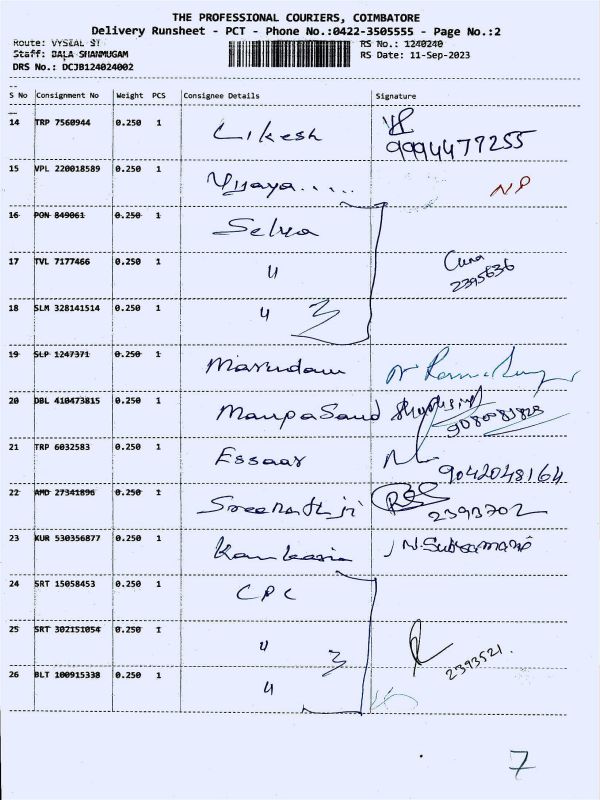 THE PROFESSIONAL COURIERS, COIMBATORE
Delivery Runsheet - PCT - Phone No.:0422-3505555 - Page No.:2
Route: VYSIAL ST
RS No.: 1240240
Staff: BALA SHANMUGAM
RS Date: 11-Sep-2023
DRS No.: DCJB124024002
S No Consignment No Weight PCS Consignee Details Signature
14 TRP 7560944 0.250 1 Likesh 9994477255
15 VPL 220018589 0.250 1 Vijaya..... NP
16 PON 849061 0.250 1 Selva
17 TVL 7177466 0.250 1 u 2395636
18 SLM 328141514 0.250 1 u 3
19 SLP 1247371 0.250 1 Marudam
20 DBL 410473815 0.250 1
21 TRP 6032583 0.250 1 Essaar 9042048164
22 AMD 27341896 0.250 1 Sreenathji 2393702
23 KUR 530356877 0.250 1 N.Subramani
24 SRT 15058453 0.250 1 CPC
25 SRT 302151054 0.250 1 u 3 2393521.
26 BLT 100915338 0.250 1 u
7